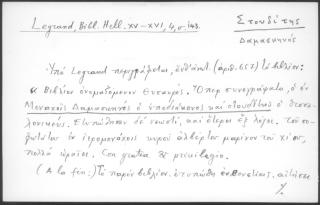 Legrand, Bibl. Hell. XV-XVI, 4, σ. 143.
Στουδίτης
Δαμασκηνός
Ὑπὸ Legrand περιγράφεται, (ἀριθ. 657) τὸ βιβλίον:
« Βιβλίον ὀνομαζόμενον Θησαυρός. Ὅπερ συνεγράψατο, ὁ ἐν
Μοναχοῖς Δαμασκηνὸς ὁ ὑποδιάκονος καὶ στουδίτης ὁ θεσσα-
λονικεύς. καὶ ἕτεροι λόγοι. τοῦ σο-
φωτάτου ἐν ἱερομονάχοις κυροῦ
πολλὰ ὡραῖοι. Con gratia & privilegio.
(A la fin:) Τὸ παρὸν βιβλίον, ἐτυπώθη ἐν Βενετίαις,